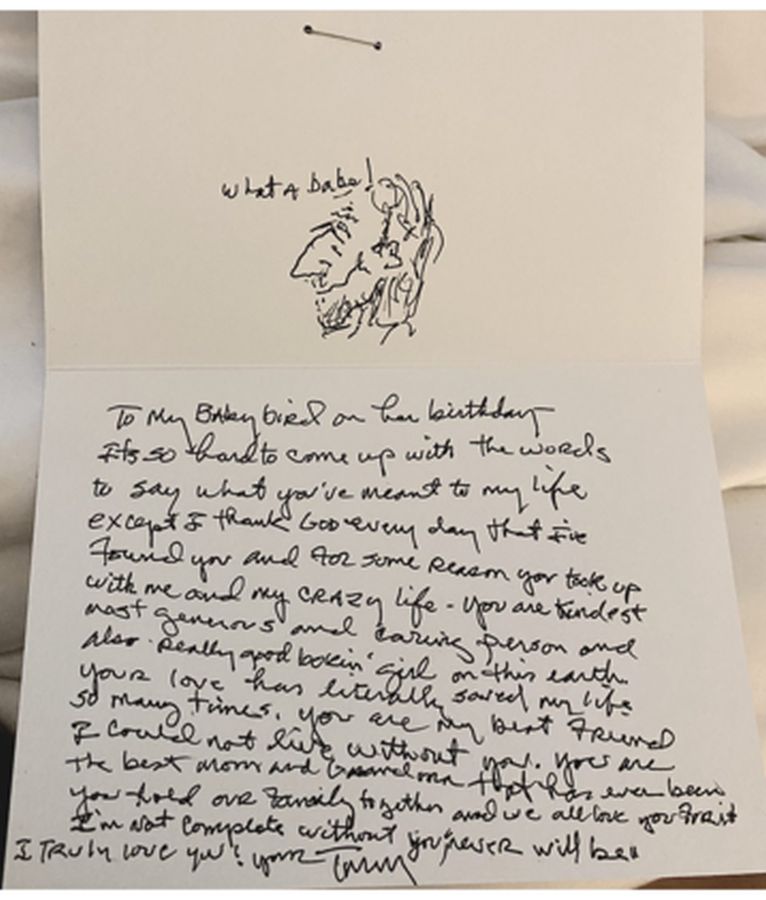 What A babe!
To My Baby bird on her birthday
It's so hard to come up with the words
to say what you've meant to my life
except I thank God every day that I've
found you and for some reason you took up
with me and my CRAZY life - you are kindest
most generous and caring person and
also really good lookin' girl on this earth.
your love has literally saved my life
so many times. you are my best friend
I could not live without you. you are
the best mom and Grandma that has ever been
you hold our family together and we all love you for it
I'm not complete without you, never will be
I TRuly love you! your